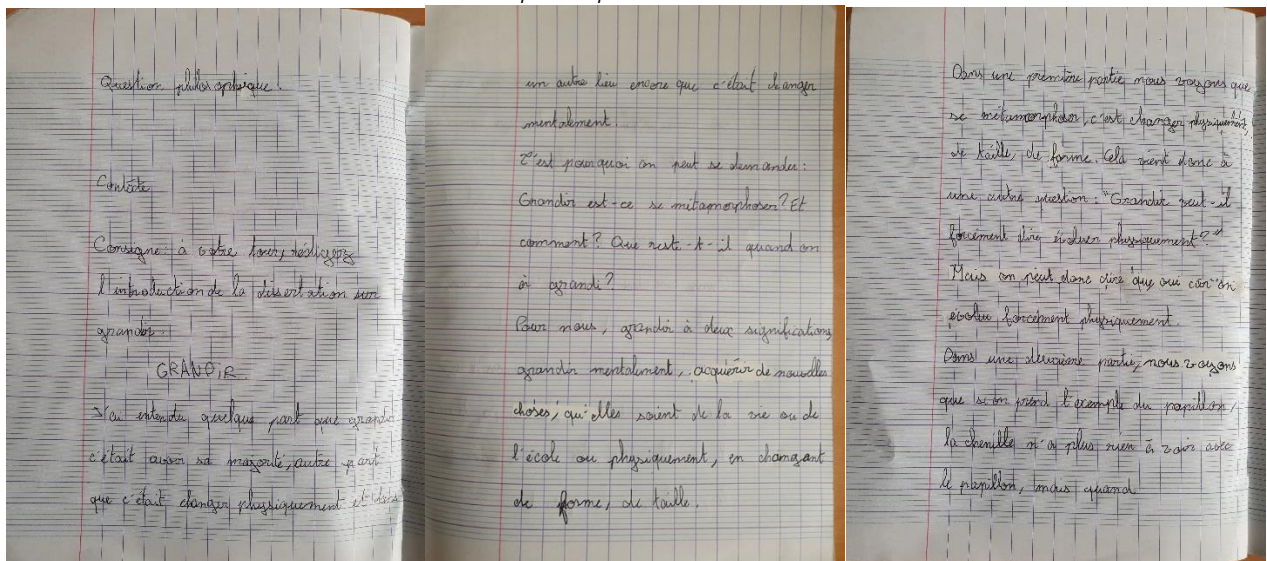 Question philosophique :
Contexte
Consigne : à votre tour, rédigez
l'introduction de la dissertation sur
grandir.
GRANDIR
J'ai entendu quelque part que grandir
c'était avoir sa majorité, autre part
que c'était changer physiquement et dans
un autre lieu encore que c'était changer
mentalement.
C'est pourquoi on peut se demander :
Grandir est-ce se métamorphoser ? Et
comment ? Que reste-t-il quand on
à grandi ?
Pour nous, grandir à deux significations,
grandir mentalement, acquiérir de nouvelles
choses, qu'elles soient de la vie ou de
l'école ou physiquement, en changant
de forme, de taille.
Dans une première partie nous voyons que
se métamorphoser, c'est changer physiquement,
de taille, de forme. Celà vient donc à
une autre question : "Grandir veut-il
forcement dire évoluer physiquement ?"
Mais on peut donc dire que oui car on
évolu forcement physiquement.
Dans une deuxième partie, nous voyons
que si on prend l'exemple du papillon,
la chenille n'a plus rien à voir avec
le papillon, mais quand